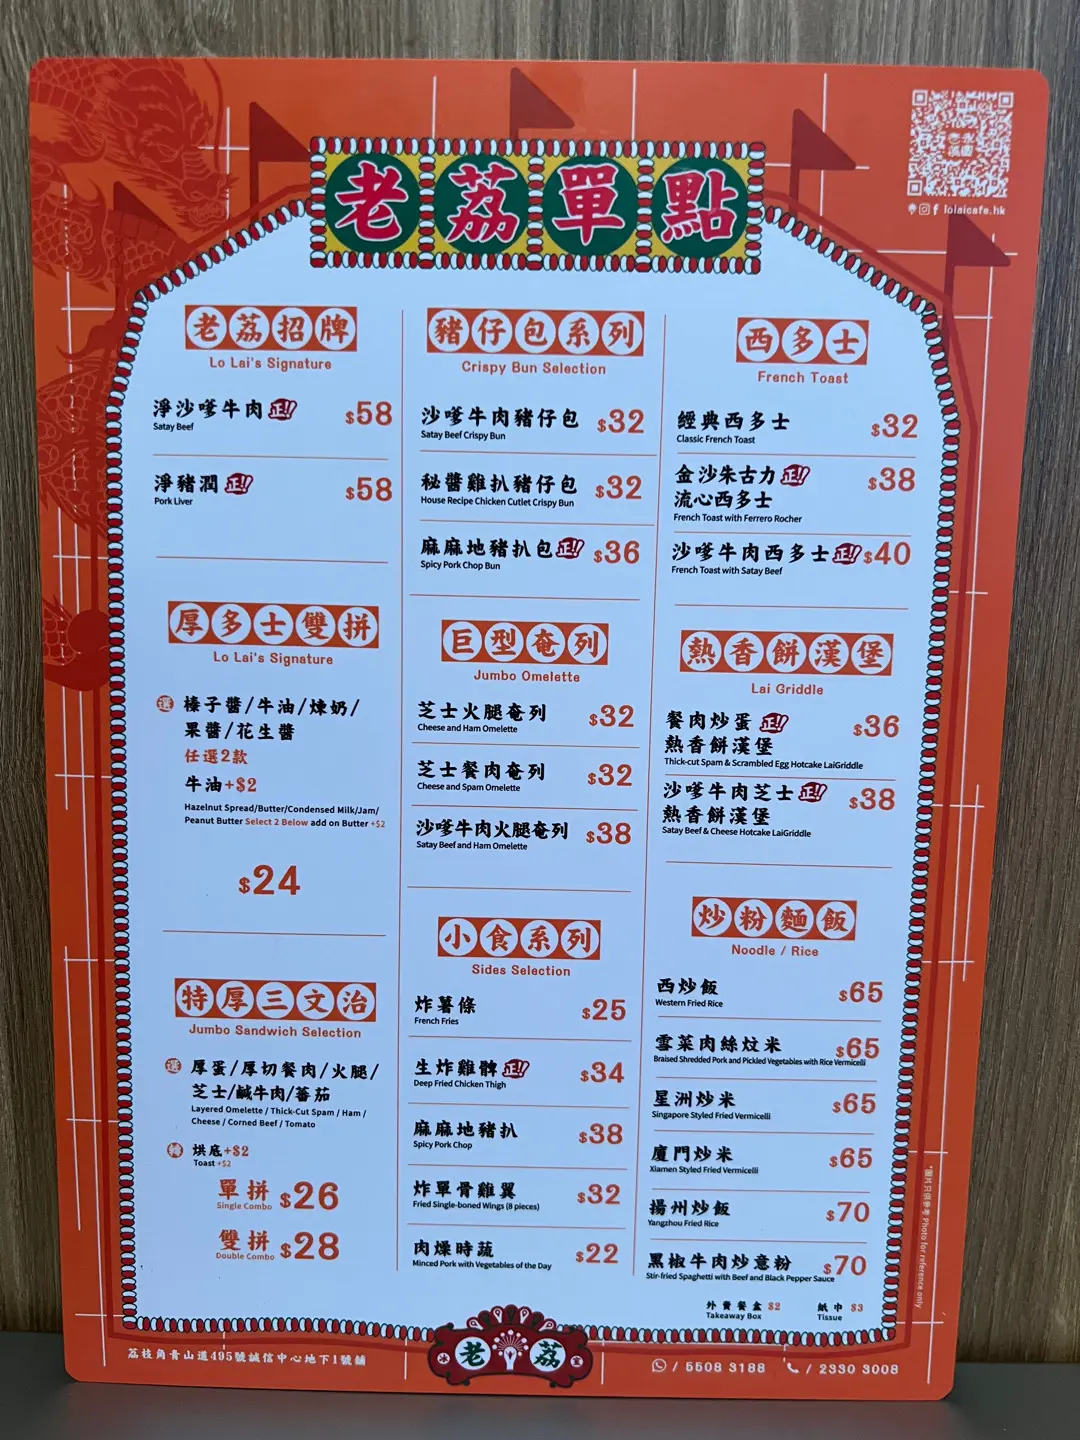 老荔單點
lolaicafe.hk
老荔招牌
Lo Lai's Signature
淨沙嗲牛肉 正!!
$58
Satay Beef
淨豬潤 正!!
$58
Pork Liver
厚多士雙拼
Lo Lai's Signature
選 榛子醬/牛油/煉奶/
果醬/花生醬
任選2款
牛油+$2
Hazelnut Spread/Butter/Condensed Milk/Jam/
Peanut Butter Select 2 Below add on Butter +$2
$24
特厚三文治
Jumbo Sandwich Selection
選 厚蛋/厚切餐肉/火腿/
芝士/鹹牛肉/蕃茄
Layered Omelette / Thick-Cut Spam / Ham /
Cheese / Corned Beef / Tomato
轉 烘底+$2
Toast +$2
單拼 $26
Single Combo
雙拼 $28
Double Combo
豬仔包系列
Crispy Bun Selection
沙嗲牛肉豬仔包 $32
Satay Beef Crispy Bun
秘醬雞扒豬仔包 $32
House Recipe Chicken Cutlet Crispy Bun
麻麻地豬扒包 正!! $36
Spicy Pork Chop Bun
巨型奄列
Jumbo Omelette
芝士火腿奄列 $32
Cheese and Ham Omelette
芝士餐肉奄列 $32
Cheese and Spam Omelette
沙嗲牛肉火腿奄列 $38
Satay Beef and Ham Omelette
小食系列
Sides Selection
炸薯條 $25
French Fries
生炸雞髀 正!! $34
Deep Fried Chicken Thigh
麻麻地豬扒 $38
Spicy Pork Chop
炸單骨雞翼 $32
Fried Single-boned Wings (8 pieces)
肉燥時蔬 $22
Minced Pork with Vegetables of the Day
西多士
French Toast
經典西多士 $32
Classic French Toast
金沙朱古力 正!! $38
流心西多士
French Toast with Ferrero Rocher
沙嗲牛肉西多士 正!! $40
French Toast with Satay Beef
熱香餅漢堡
Lai Griddle
餐肉炒蛋 正!! $36
熱香餅漢堡
Thick-cut Spam & Scrambled Egg Hotcake LaiGriddle
沙嗲牛肉芝士 正!! $38
熱香餅漢堡
Satay Beef & Cheese Hotcake LaiGriddle
炒粉麵飯
Noodle / Rice
西炒飯 $65
Western Fried Rice
雪菜肉絲炆米 $65
Braised Shredded Pork and Pickled Vegetables with Rice Vermicelli
星洲炒米 $65
Singapore Styled Fried Vermicelli
廈門炒米 $65
Xiamen Styled Fried Vermicelli
揚州炒飯 $70
Yangzhou Fried Rice
黑椒牛肉炒意粉 $70
Stir-fried Spaghetti with Beef and Black Pepper Sauce
外賣餐盒 $2 紙巾 $3
Takeaway Box Tissue
*圖片只供參考 Photo for reference only
荔枝角青山道495號誠信中心地下1號舖
冰 老荔 室
/ 5508 3188 / 2330 3008